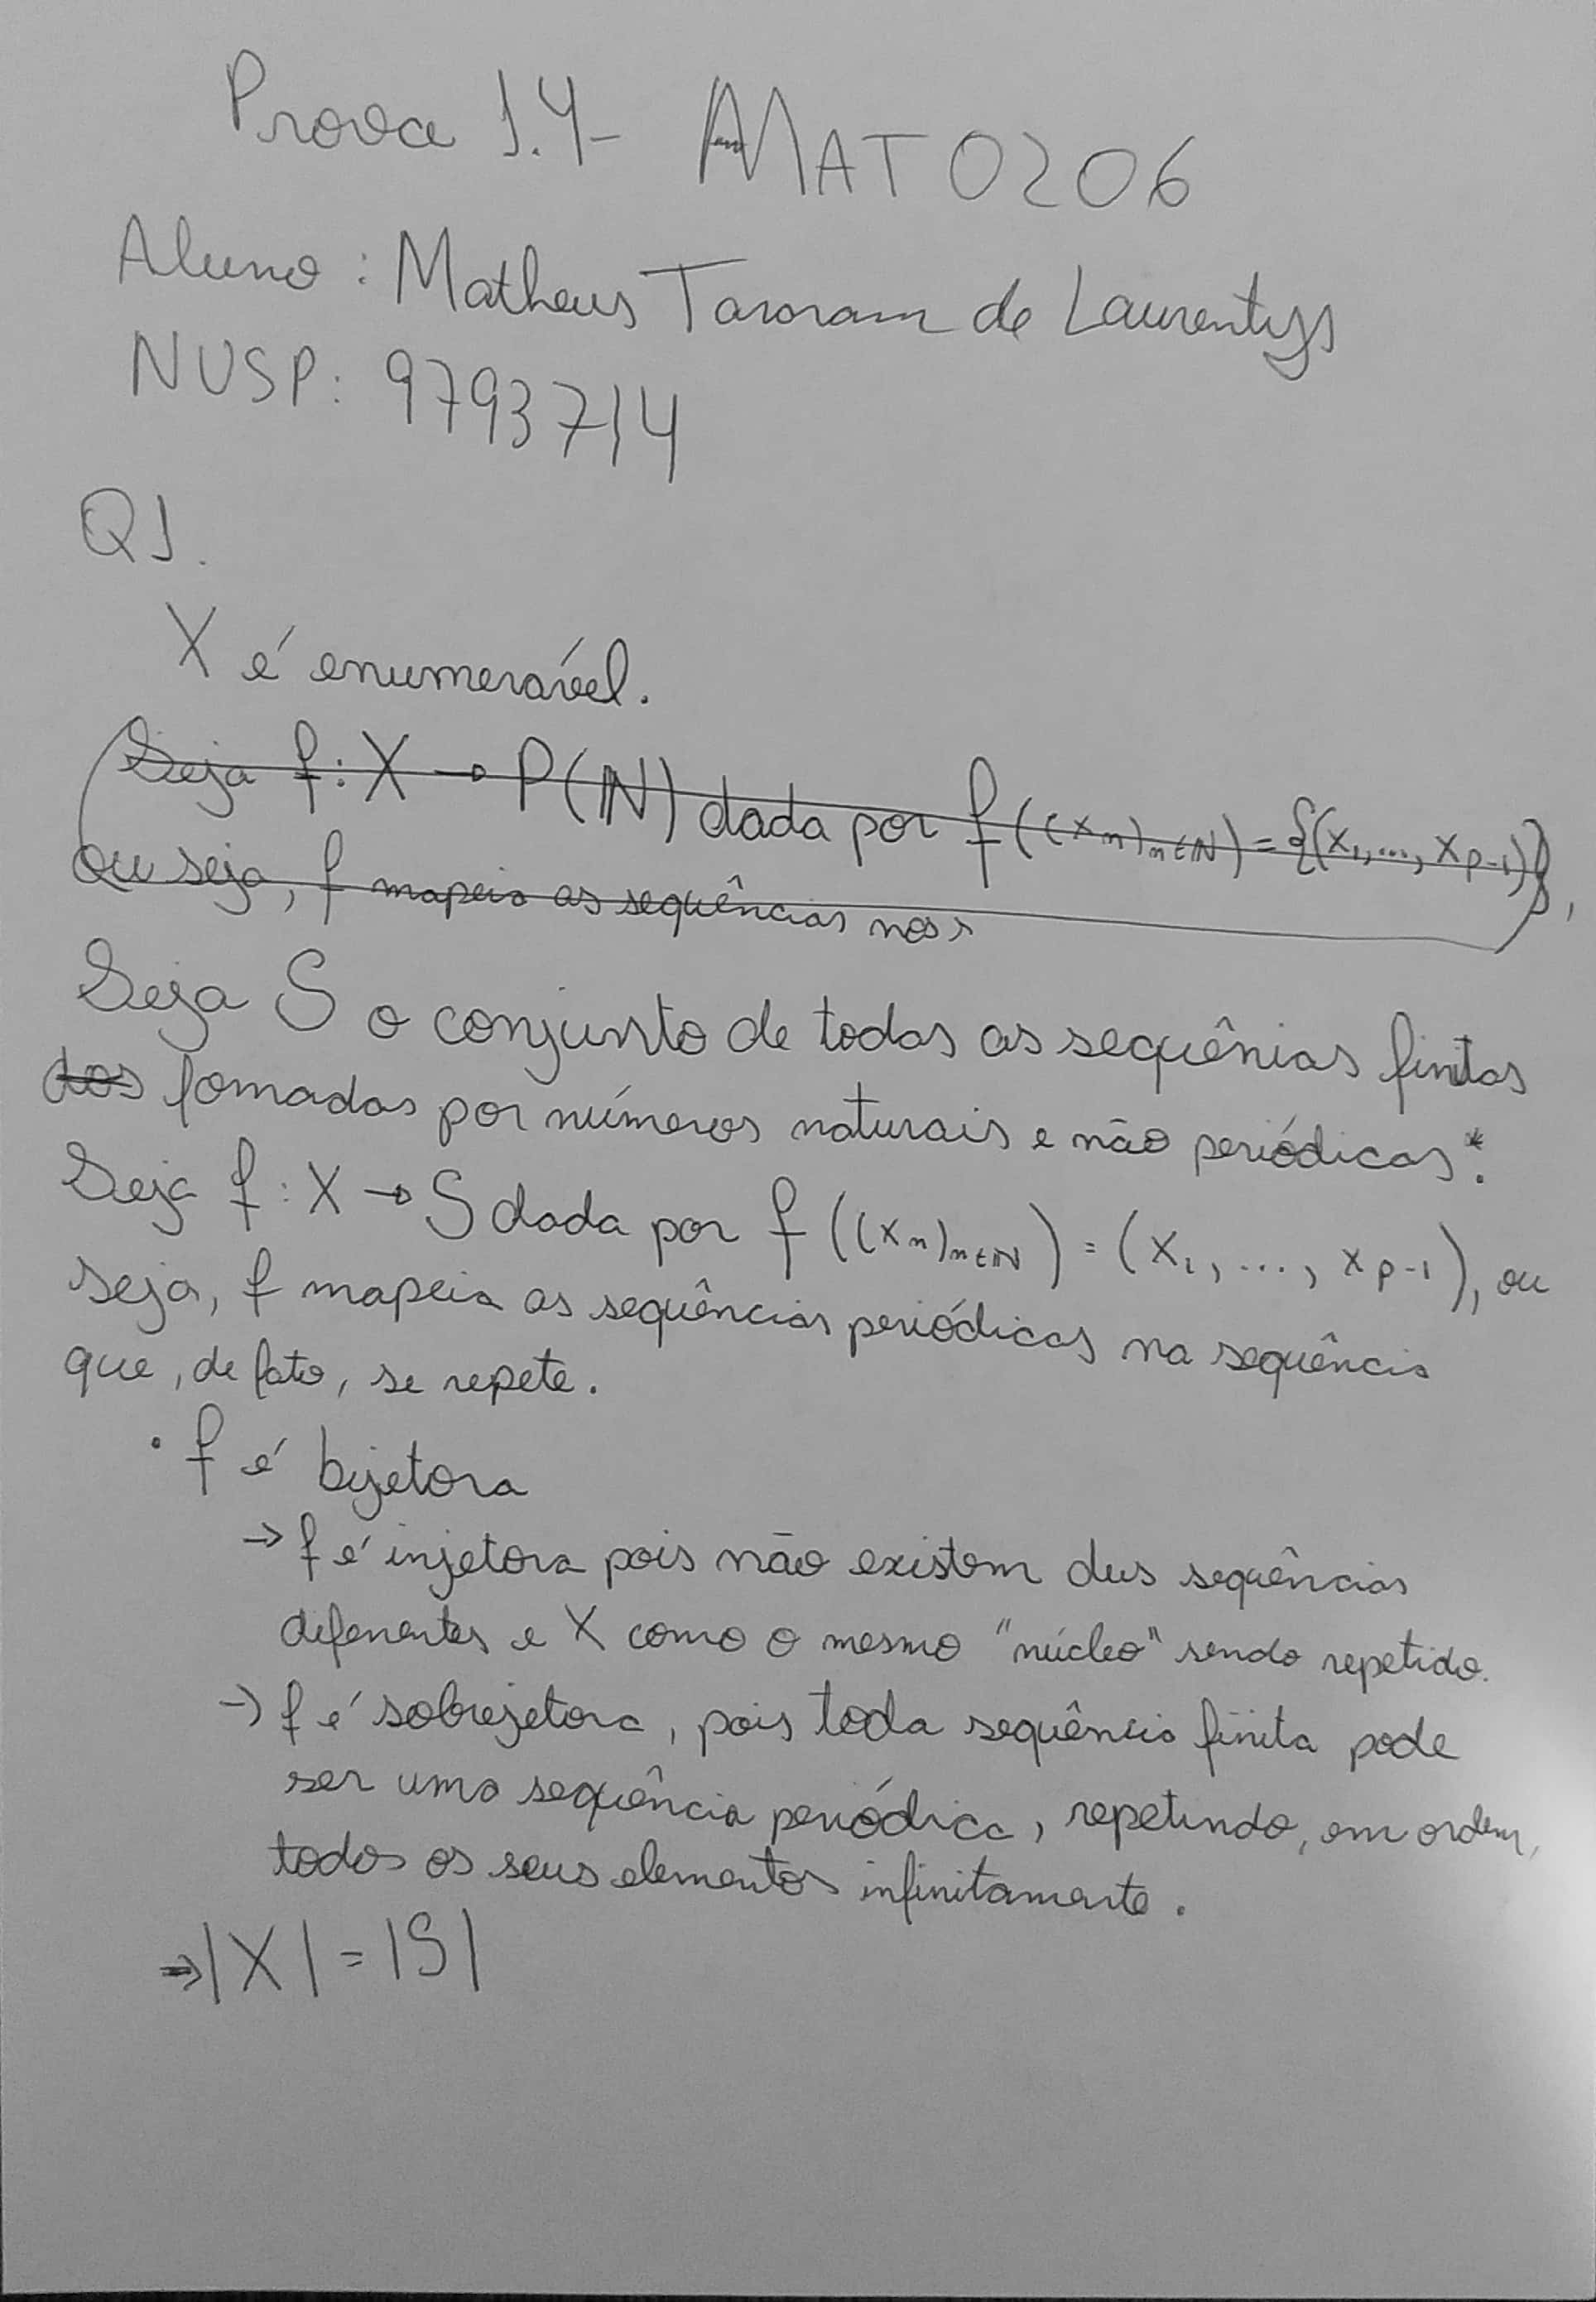 Prova 1.4 - MAT0206
Aluno: Matheus de Laurentys
NUSP: 9793714
Q1.
X é enumerável.
Seja f: X → P(ℕ) dada por f((xₙ)ₙ∈ℕ) = {(x₁, ..., xₚ₋₁)},
ou seja, f mapeia as sequências nos
Seja S o conjunto de todas as sequênias finitas
dos fomadas por números naturais e não periódicas*.
Seja f: X → S dada por f((xₙ)ₙ∈ℕ) = (x₁, ..., xₚ₋₁), ou
seja, f mapeia as sequências periódicas na sequência
que, de fato, se repete.
• f é bijetora
→ f é injetora pois não existem dus sequências
diferentes e X como o mesmo "núcleo" sendo repetido.
→ f é sobrejetora, pois toda sequência finita pode
ser uma sequência periódica, repetindo, em ordem,
todos os seus elementos infinitamente.
⇒ |X| = |S|